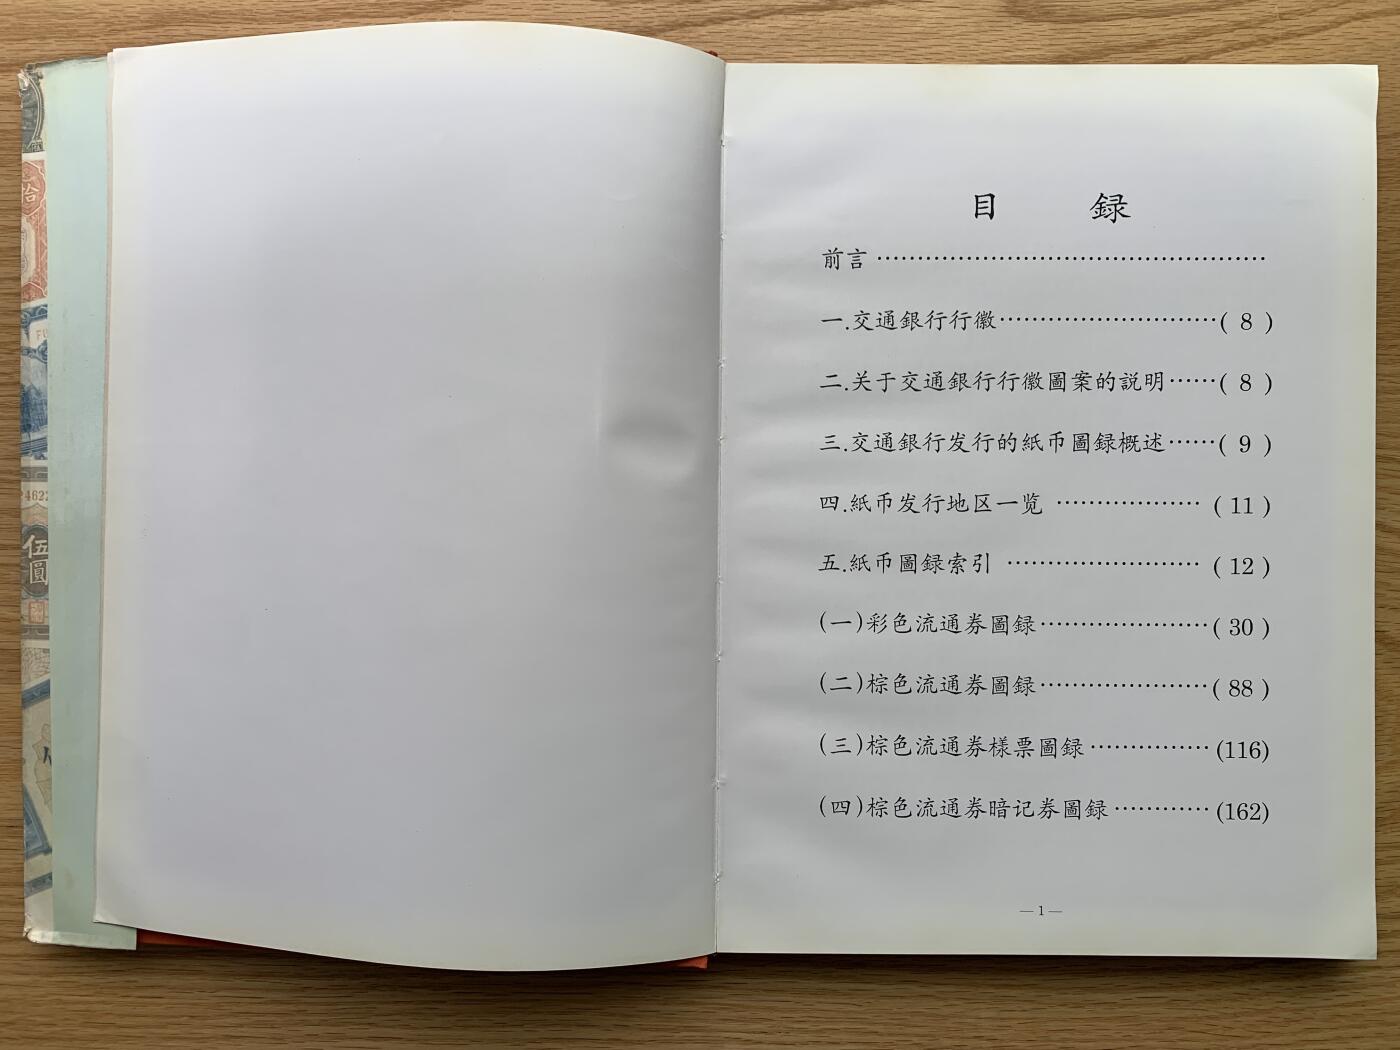 拾
FU
462
伍
圓
目 録
前言……………………………………………
一.交通銀行行徽………………………( 8 )
二.关于交通銀行行徽圖案的説明……( 8 )
三.交通銀行发行的紙币圖録概述……( 9 )
四.紙币发行地区一览 ………………( 11 )
五.紙币圖録索引 ……………………( 12 )
(一)彩色流通券圖録…………………( 30 )
(二)棕色流通券圖録…………………( 88 )
(三)棕色流通券樣票圖録……………(116)
(四)棕色流通券暗记券圖録…………(162)
— 1 —